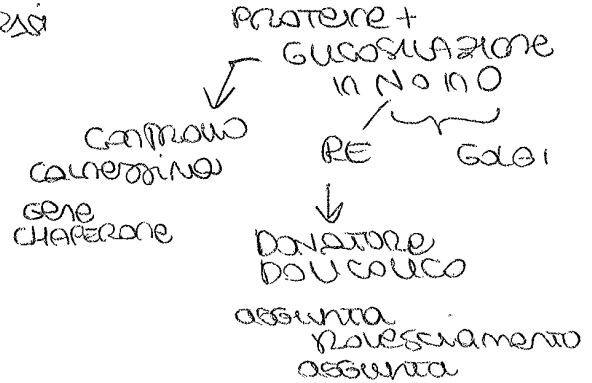 PROTEINE +
GLICOSILAZIONE
in N o in O
CONTROLLO
calnessina
RE
GOLGI
gene
CHAPERONE
DONATORE
DOLICOLICO
aggiunta
rovesciamento
aggiunta